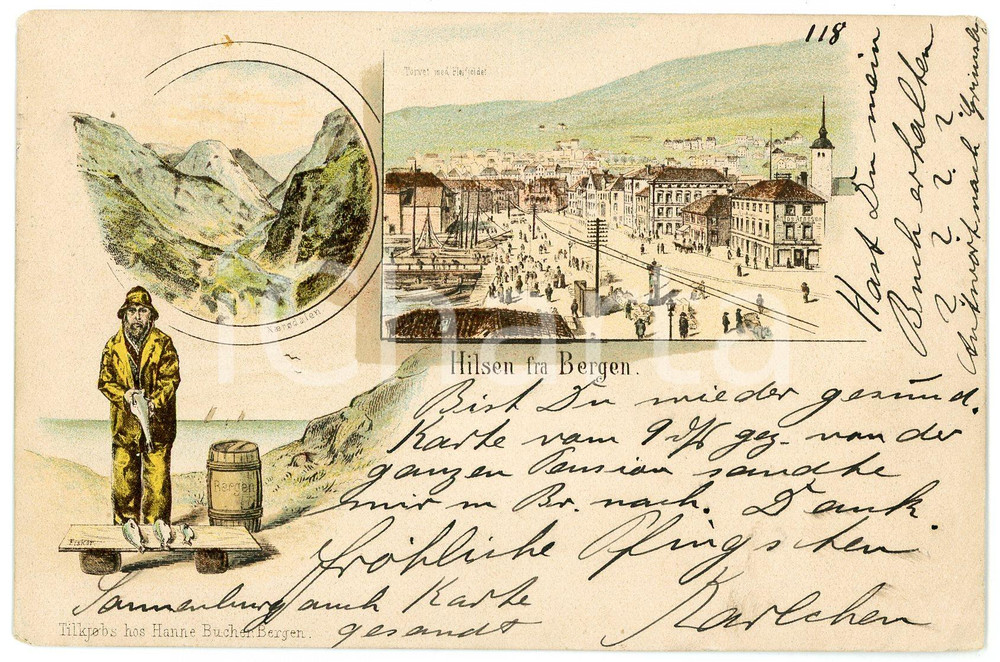 118
Torvet med Fløifjeldet
Nærødalen
Hilsen fra Bergen.
Bergen
Fisker.
Tilkjøbs hos Hanne Buchen Bergen.
Hast Du mein
Buch erhalten
? ? ? ?
Antwort nach Grimsby
Bist Du wieder gesund.
Karte vom 9 d/s gez. von der
ganzen Pension sandte
mir m Br. nach. Dank.
fröhliche Pfingsten
Karlchen
Sonnenburg auch Karte
gesandt
iCharta